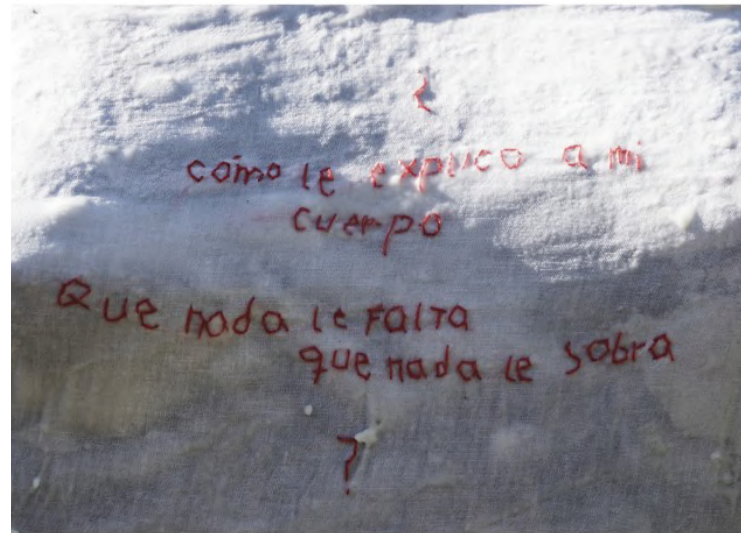 ¿
cómo le explico a mi
cuerpo
Que nada le Falta
que nada le sobra
?